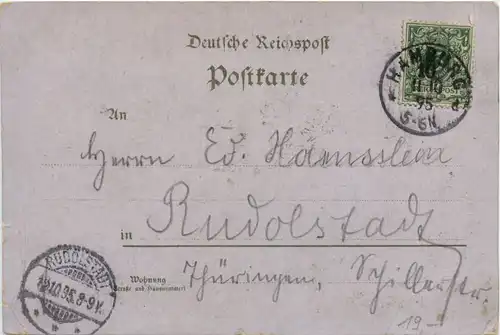 Deutsche Reichspost
Postkarte
HAMBURG
11.10
95
5-6N.
An
Herrn Ed. Haensslein
in Rudolstadt
RUDOLSTADT
12.10.95.8-9V.
Wohnung
(Straße und Hausnummer)
Thüringen, Schillerstr.
19-